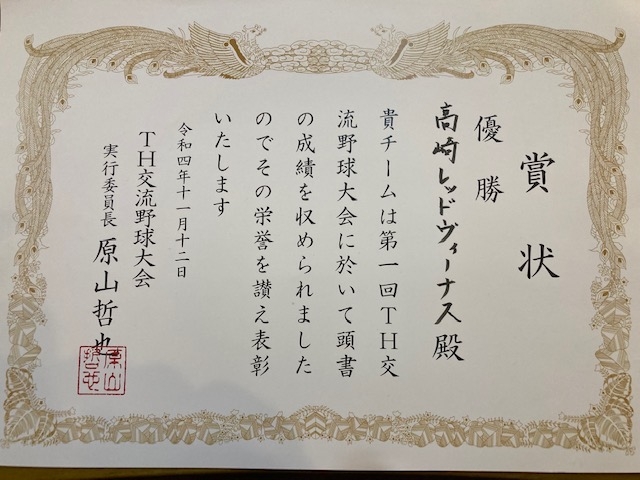 賞状
優勝
高崎レッドヴィーナス殿
貴チームは第一回TH交
流野球大会に於いて頭書
の成績を収められました
のでその栄誉を讃え表彰
いたします
令和四年十一月十二日
TH交流野球大会
実行委員長 原山哲也